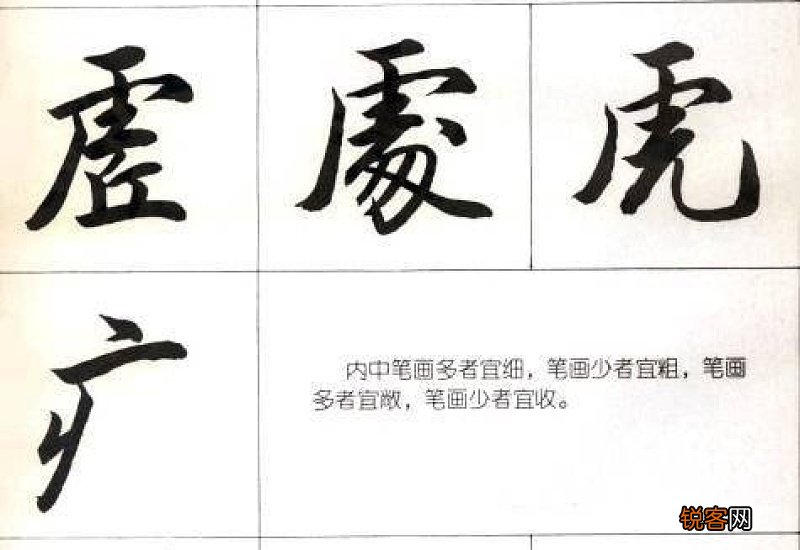 虛 處 虎
疒
内中笔画多者宜细，笔画少者宜粗，笔画
多者宜敞，笔画少者宜收。
锐客网